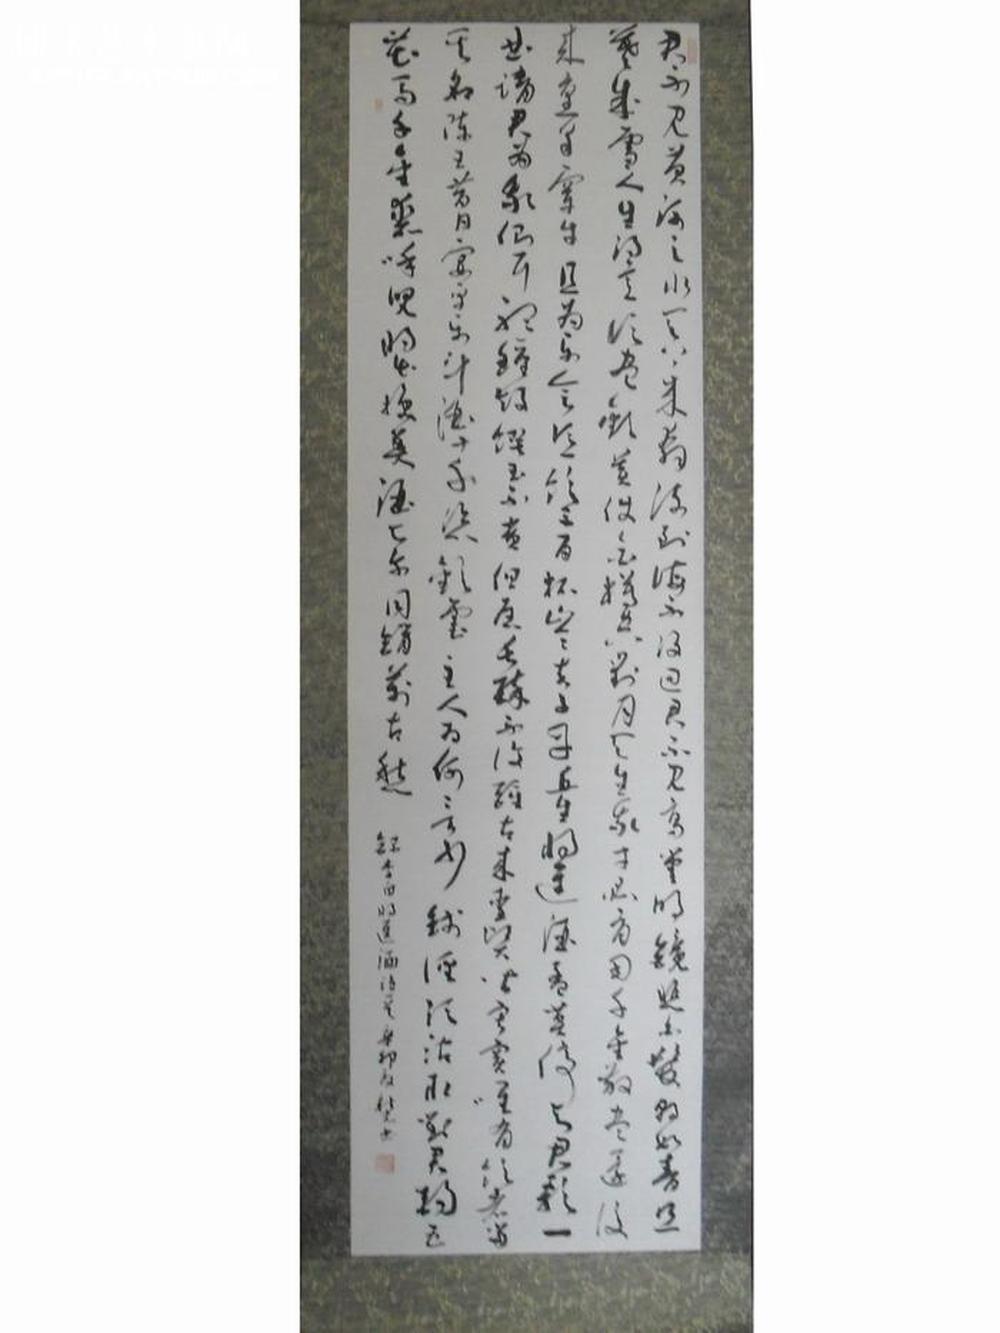 君不见黄河之水天上来奔流到海不复回君不见高堂明镜悲白发朝如青丝
暮成雪人生得意须尽欢莫使金樽空对月天生我才必有用千金散尽还复
来烹羊宰牛且为乐会须饮三百杯岑夫子丹丘生将进酒君莫停与君歌一
曲请君为我侧耳听钟鼓馔玉不足贵但愿长醉不复醒古来圣贤皆寂寞惟有饮者留
其名陈王昔日宴平乐斗酒十千恣欢谑主人为何言少钱径须沽取对君酌五
花马千金裘呼儿将出换美酒与尔同销万古愁
录李白将进酒诗一首辛卯